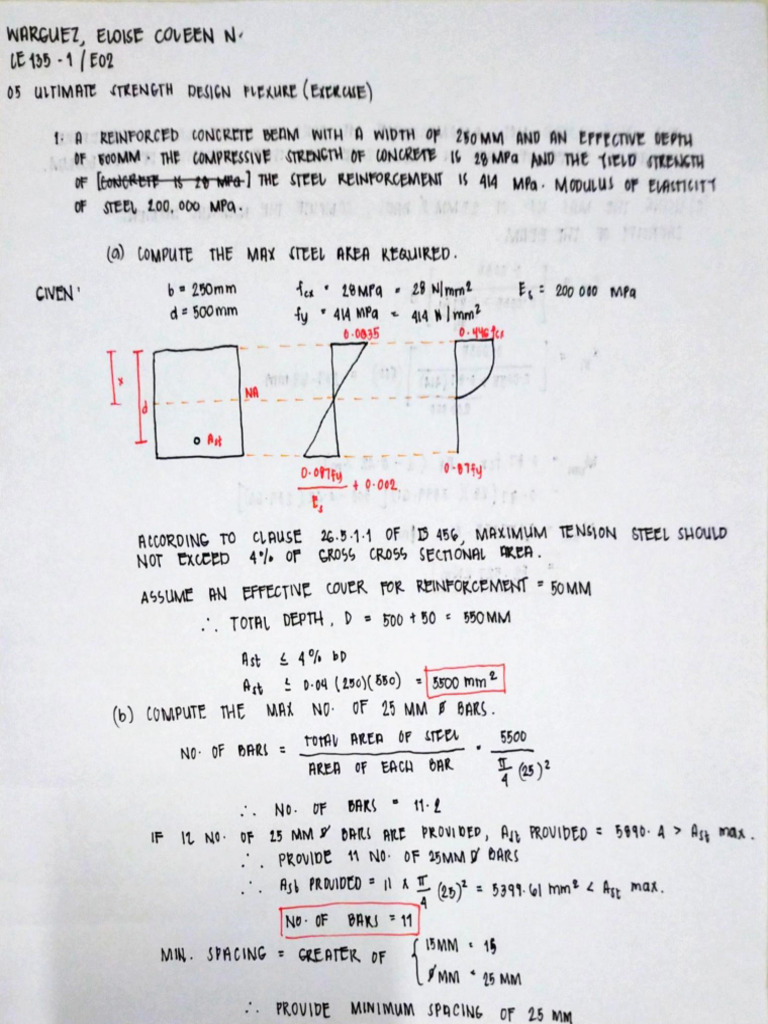 WARGUEZ, ELOISE COLEEN N.
CE 135 - 1 / E02
05 ULTIMATE STRENGTH DESIGN FLEXURE (EXERCISE)
1. A REINFORCED CONCRETE BEAM WITH A WIDTH OF 250 MM AND AN EFFECTIVE DEPTH
OF 500MM. THE COMPRESSIVE STRENGTH OF CONCRETE IS 28 MPa AND THE YIELD STRENGTH
OF [CONCRETE IS 28 MPa] THE STEEL REINFORCEMENT IS 414 MPa. MODULUS OF ELASTICITY
OF STEEL 200,000 MPa.
(a) COMPUTE THE MAX STEEL AREA REQUIRED.
GIVEN: b = 250mm fck = 28MPa = 28 N/mm² Es = 200 000 MPa
d = 500mm fy = 414 MPa = 414 N/mm²
0.0035 0.446fck
x
d
NA
Ast
0.087fy / Es + 0.002
0.87fy
ACCORDING TO CLAUSE 26.5.1.1 OF IS 456, MAXIMUM TENSION STEEL SHOULD
NOT EXCEED 4% OF GROSS CROSS SECTIONAL AREA.
ASSUME AN EFFECTIVE COVER FOR REINFORCEMENT = 50MM
∴ TOTAL DEPTH, D = 500 + 50 = 550MM
Ast ≤ 4% bD
Ast ≤ 0.04 (250)(550) = 5500 mm²
(b) COMPUTE THE MAX NO. OF 25 MM Ø BARS.
NO. OF BARS = TOTAL AREA OF STEEL / AREA OF EACH BAR = 5500 / π/4 (25)²
∴ NO. OF BARS = 11.2
IF 12 NO. OF 25 MM Ø BARS ARE PROVIDED, Ast PROVIDED = 5890.4 > Ast max.
∴ PROVIDE 11 NO. OF 25MM Ø BARS
∴ Ast PROVIDED = 11 x π/4 (25)² = 5399.61 mm² < Ast max.
NO. OF BARS = 11
MIN. SPACING = GREATER OF { 15MM = 15
Ø MM = 25 MM
∴ PROVIDE MINIMUM SPACING OF 25 MM